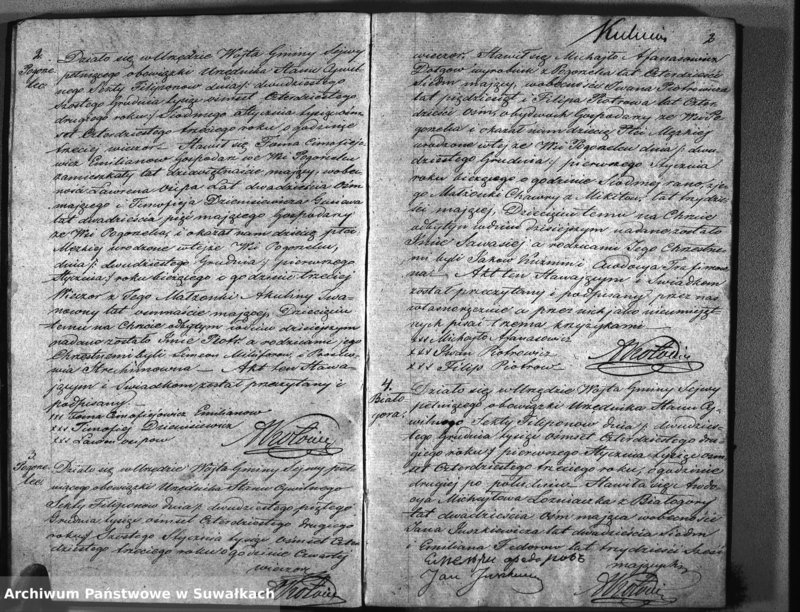 2
2.
Pogorelec
Działo się w Urzędzie Wójta Gminy Sejwy
pełniącego obowiązki Urzędnika Stanu Cywil
nego Sekty Filiponow dnia dwudziestego
szostego Grudnia tysiąc osmset czterdziestego
drugiego roku/ siodmego Stycznia tysiąc ośm
set czterdziestego trzeciego roku o godzinie
trzeciej wieczor. Stawił się Foma
Emilianow Gospodarz we Wsi Pogorelcu
zamieszkały lat majacy, wobec
ności Ławrena Osipa lat dwadzieścia ośm
mającego i Timofieja
lat dwadzieścia pięć mającego Gospodarzy
ze Wsi Pogorelca, i okazał nam dziecię płci
Męzkiej urodzone w tejze Wsi Pogorelcu,
dnia/ dwudziestego Grudnia/ pierwszego
Stycznia/ roku bieżącego o godzinie trzeciej
Wieczor z Jego Małżonki Akuliny Iwa
nowny lat ośmnaście mającej. Dziecięciu
temu na Chrzcie odbytym w dniu dzisiejszym
nadano zostało Imie Piotr a rodzicami jego
Chrzestnemi byli Simeon
Akt ten Stawa
jącym i Świadkom został przeczytany i
podpisany
xxx Foma Emilianow
xxx Timofiej
xxx Ławren Osipow
3.
Pogore
lec
Działo się w Urzędzie Wójta Gminy Sejwy peł
niącego obowiązki Urzędnika Stanu Cywilnego
Sekty Filiponow dnia/ dwudziestego piątego
Grudnia tysiąc ośmset czterdziestego drugiego
roku/ Szostego Stycznia tysiąc ośmset czter
dziestego trzeciego roku o godzinie czwartej
wieczor
wieczor. Stawił się Michajło Afanasowicz
wyrobnik z Pogorelca lat czterdzieści
Siedm mający, wobecności Iwana Piotrowicza
lat pięćdziesiąt i Filipa Piotrowa lat czter
dzieści ośm, obydwóch Gospodarzy ze Wsi Po
gorelca i okazał nam dziecię Płci Męzkiej
urodzone w tej ze Wsi Pogorelcu dnia/ dwu
dziestego Grudnia/ pierwszego Stycznia
roku bieżącego o godzinie Siodmej rano, z je
go Małżonki z Mikitow, lat trzydzie
ści mającej, Dziecięciu temu na Chrzcie
odbytym w dniu dzisiejszym nadano zostało
Imie a rodzicami Jego Chrzestne
mi byli Jakow i
Akt ten Stawającym i Świadkom
został przeczytany i podpisany przez nas
własnoręcznie a przez nich jako nieumieją
cych pisać trzema krzyżykami
xxx Michajło Afanasowicz
xxx Iwan Piotrowicz
xxx Filip Piotrow
4.
Biało
gora.
Działo się w Urzędzie Wójta Gminy Sejwy
pełniącego obowiązki Urzędnika Stanu Cy
wilnego Sekty Filiponow dnia/ dwudzies
tego Grudnia tysiąc ośmset czterdziestego dru
giego roku/ pierwszego Stycznia tysiąc ośm
set czterdziestego trzeciego roku, o godzinie
drugiej po południu Stawiła się
Michajłowa z Białogory
lat dwadzieścia ośm mająca wobecności
Jana Juszkiewicza lat dwadzieścia Siedm
i Emiliana Fedorow lat trzydzieści sześć
mających
Archiwum Państwowe w Suwałkach